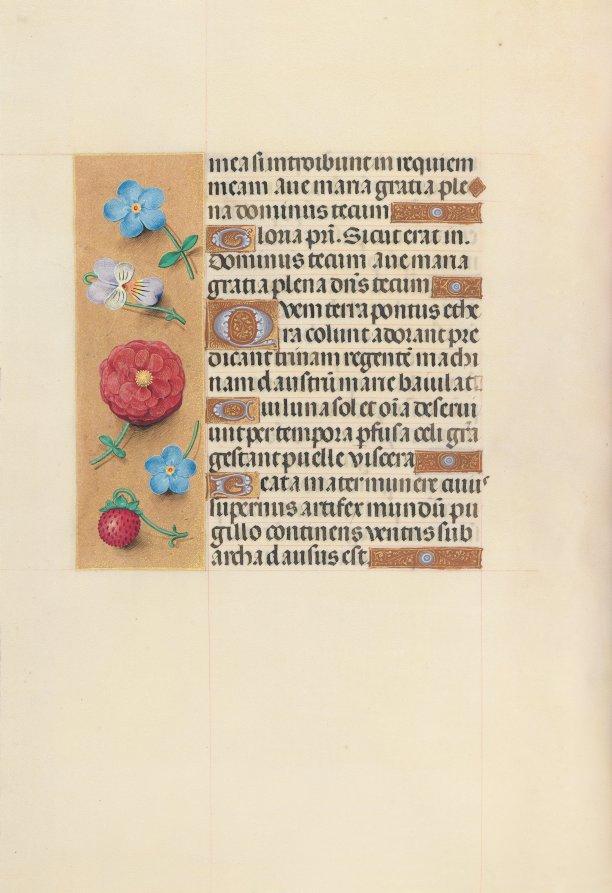 mea si introibunt in requiem
meam Aue maria gratia ple
na dominus tecum
Gloria pr̄i. Sicut erat in.
Dominus tecum Aue maria
gratia plena dn̄s tecum
Quem terra pontus ethe
ra colunt adorant pre
dicant trinam regentē machi
nam claustrū marie baiulat.
Cui luna sol et oīa deserui
unt per tempora pfusa celi grā
gestant puelle viscera
Beata mater munere cuius
supernus artifex mundū pu
gillo continens ventris sub
archa clausus est.